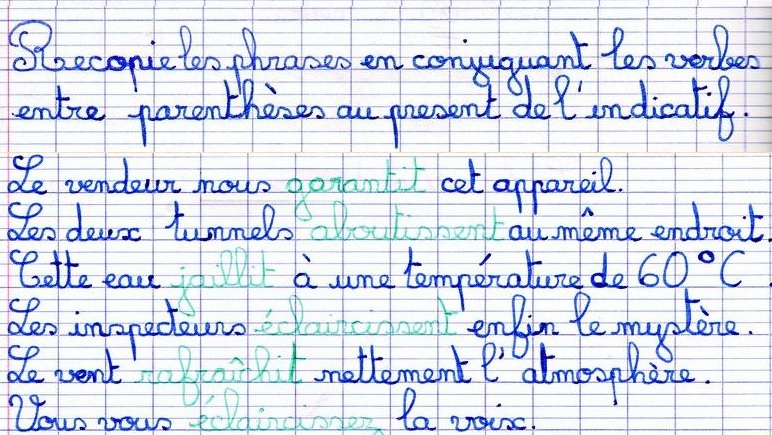 Recopie les phrases en conjuguant les verbes
entre parenthèses au présent de l'indicatif.
Le vendeur nous garantit cet appareil.
Les deux tunnels aboutissent au même endroit.
Cette eau jaillit à une température de 60°C.
Les inspecteurs éclaircissent enfin le mystère.
Le vent rafraîchit nettement l'atmosphère.
Vous vous éclaircissez la voix.